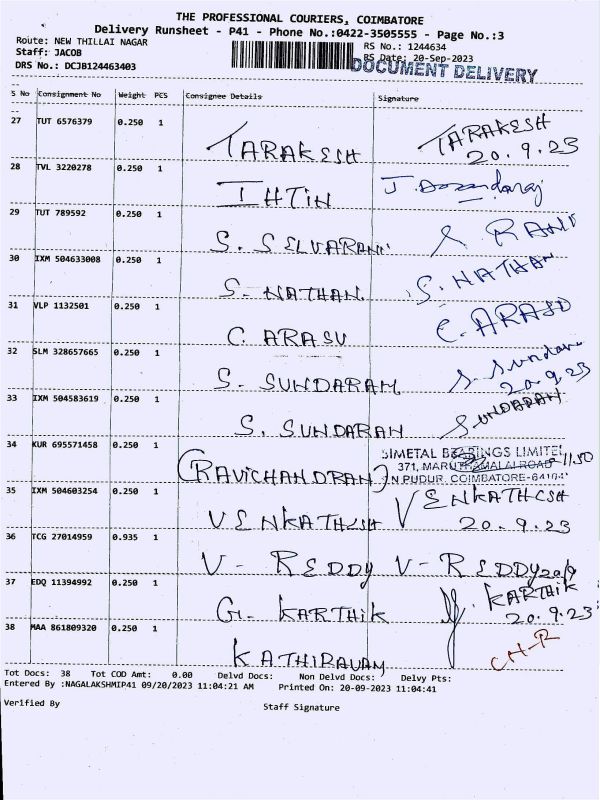 THE PROFESSIONAL COURIERS, COIMBATORE
Delivery Runsheet - P41 - Phone No.:0422-3505555 - Page No.:3
Route: NEW THILLAI NAGAR
RS No.: 1244634
Staff: JACOB
RS Date: 20-Sep-2023
DRS No.: DCJB124463403
DOCUMENT DELIVERY
S No Consignment No Weight PCS Consignee Details Signature
27 TUT 6576379 0.250 1
TARAKESH TARAKESH
20.9.23
28 TVL 3220278 0.250 1
IHTIN J.
29 TUT 789592 0.250 1
S. SELVARANI S RANI
30 IXM 504633008 0.250 1
S. NATHAN. S. NATHAN
31 VLP 1132501 0.250 1
C. ARASU C. ARASU
32 SLM 328657665 0.250 1
S. SUNDARAM S. Sundaram
20.9.23
33 IXM 504583619 0.250 1
S. SUNDARAN SUNDARAN
34 KUR 695571458 0.250 1
(RAVICHANDRAN)
SIMETAL BEARINGS LIMITE
371, MARUTHAMALAI ROAD 11.50
N.PUDUR, COIMBATORE-64104
35 IXM 504603254 0.250 1
VENKATHESH VENKATHESH
20.9.23
36 TCG 27014959 0.935 1
V- REDDY V- REDDY 20/9
37 EDQ 11394992 0.250 1
G. KARTHIK KARTHIK
20.9.23
38 MAA 861809320 0.250 1
KATHIRAVAN CH-R
Tot Docs: 38 Tot COD Amt: 0.00 Delvd Docs: Non Delvd Docs: Delvy Pts:
Entered By :NAGALAKSHMIP41 09/20/2023 11:04:21 AM Printed On: 20-09-2023 11:04:41
Verified By Staff Signature